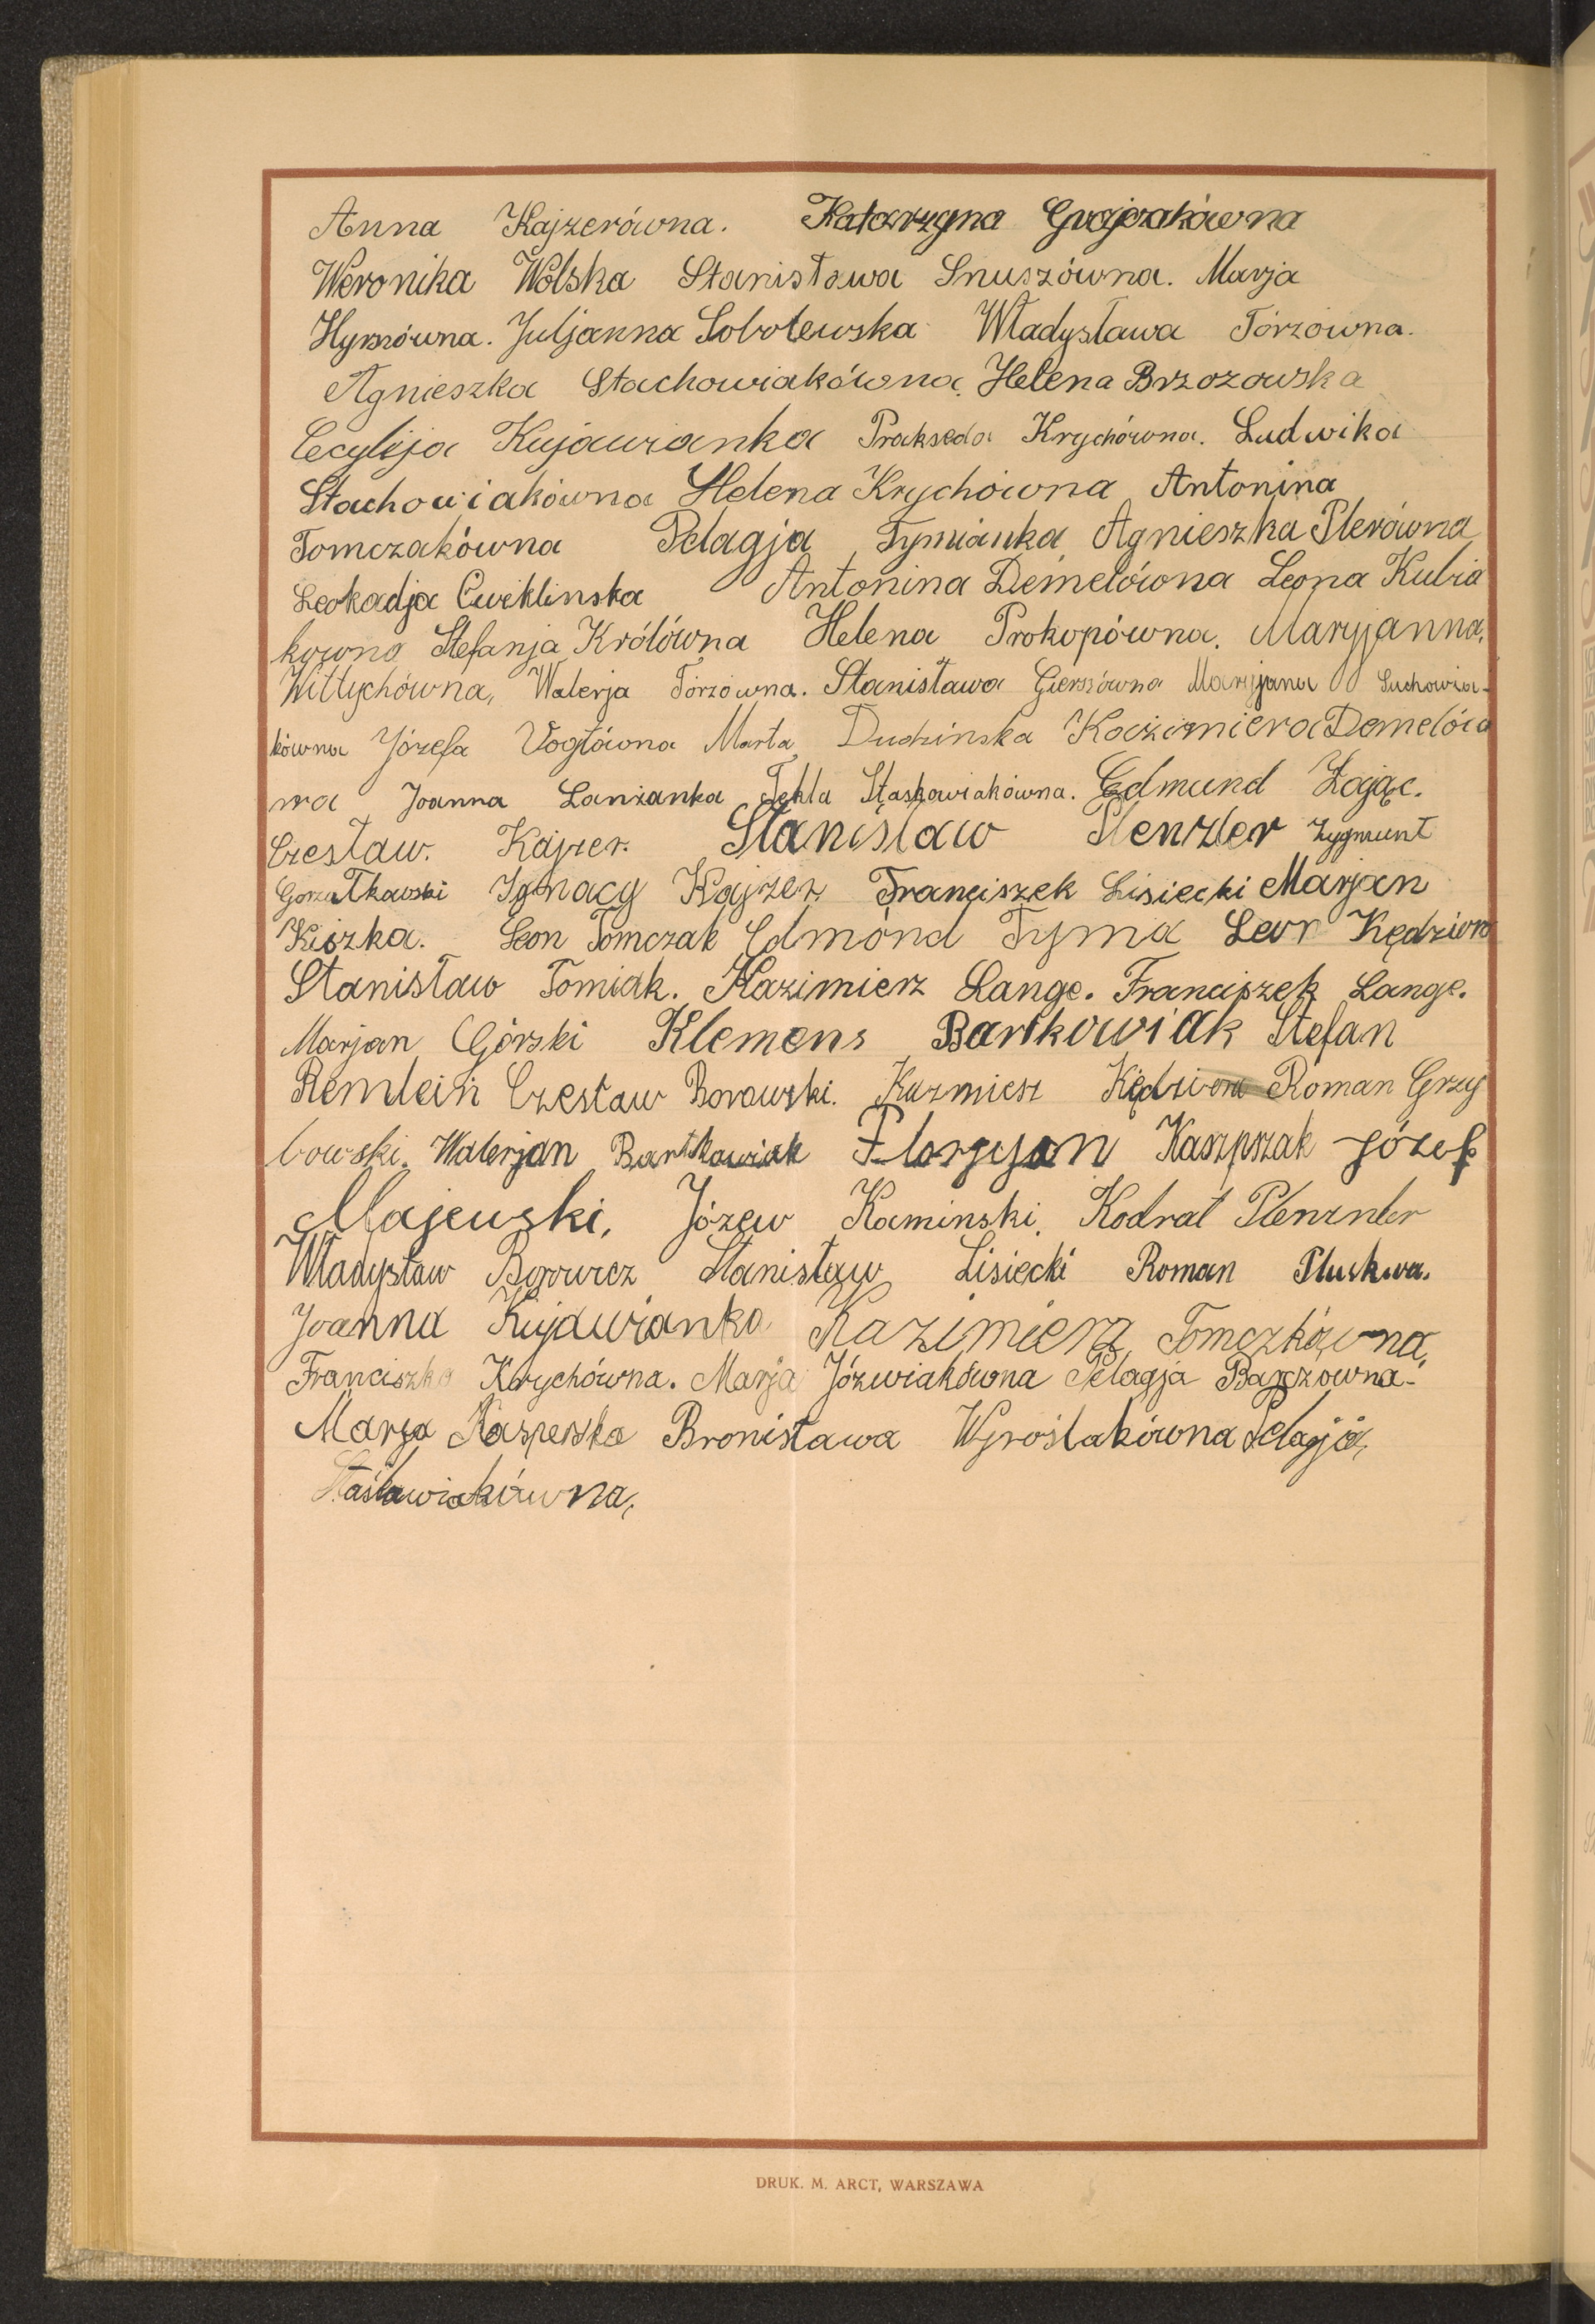 Anna Kajzerówna. Katarzyna Grajczakówna
Weronika Wolska Stanisława Snuszówna. Marja
Hymzówna. Juljanna Sobolewska Władysława Tórzówna.
Agnieszka Stachowiakówna. Helena Brzozowska
Cecylija Kujawianka Prakseda Krychówna. Ludwika
Stachowiakówna Helena Krychówna Antonina
Tomczakówna Pelagja Tymianka Agnieszka Plerówna
Leokadja Cwiklinska Antonina Demelówna Leona Kubia
kowna Stefanja Królówna Helena Prokopówna. Maryjanna,
Wittychówna, Walerja Tórzówna. Stanisława Gierszówna Maryjana Suchowia-
kówna Józefa Vogtówna Marta Dudzinska Kaźimiera Demelów
na Joanna Lanżanka Tekla Staskowiakówna. Edmund Zając.
Czesław. Kajzer. Stanisław Plenzler Zygmunt
Ignacy Kajzer Franciszek Lisiecki Marjan
Kiszka. Leon Tomczak Edmond Tyma Leon Kędziora
Stanisław Tomiak. Kazimierz Lange. Franciszek Lange.
Marjan Górski Klemens Bartkowiak Stefan
Remlein Czesław Borowski. Kazmierz Kędziora Roman Grzy
bowski. Walerjan Bartkowiak Floryjan Kaszpszak Józef
Majewski, Józew Kaminski. Kodrat Plenzner
Władysław Borowicz Stanisław Lisiecki Roman Pluskwa.
Joanna Kujawianka Kazimiera Tomczkówna,
Franciszka Krychówna. Marja Józwiakówna Pelagja Barczówna.
Marja Kasperska Bronisława Wyroślakówna Pelagja,
Staśkawiakówna,
DRUK. M. ARCT, WARSZAWA